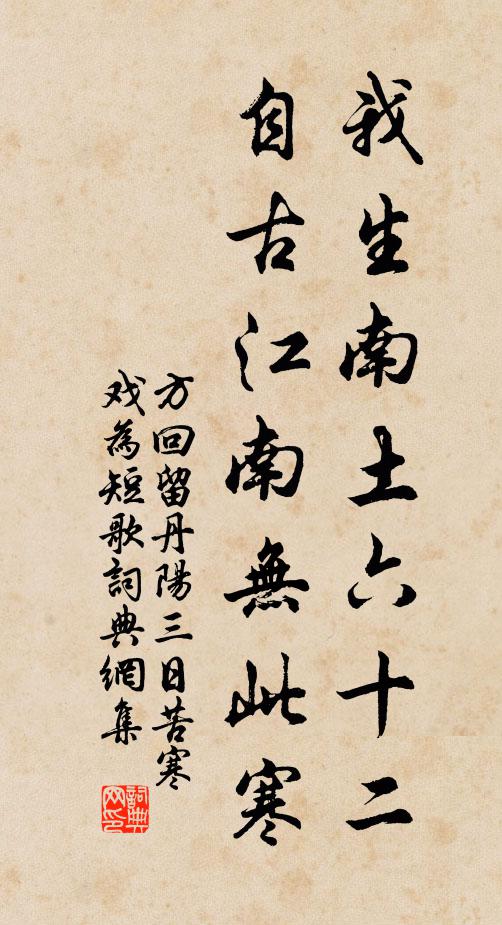 我生南土六十二
自古江南無此寒
方回留丹陽三日苦寒
戏為短歌詞典網集
詞典
网印